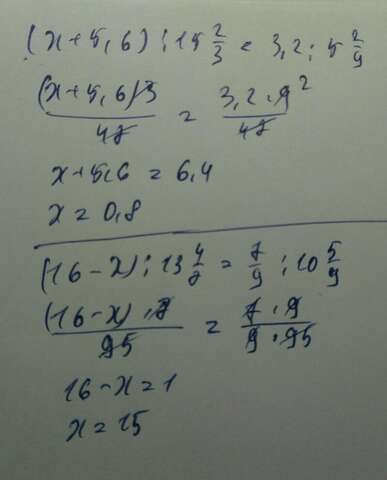 (x+5,6) : 15 2/3 = 3,2 : 5 2/9
(x+5,6)3/47 = 3,2·9²/47
x+5,6 = 6,4
x = 0,8
(16-x) : 13 4/7 = 7/9 : 10 5/9
(16-x)·7/95 = 7·9/9·95
16-x=1
x=15